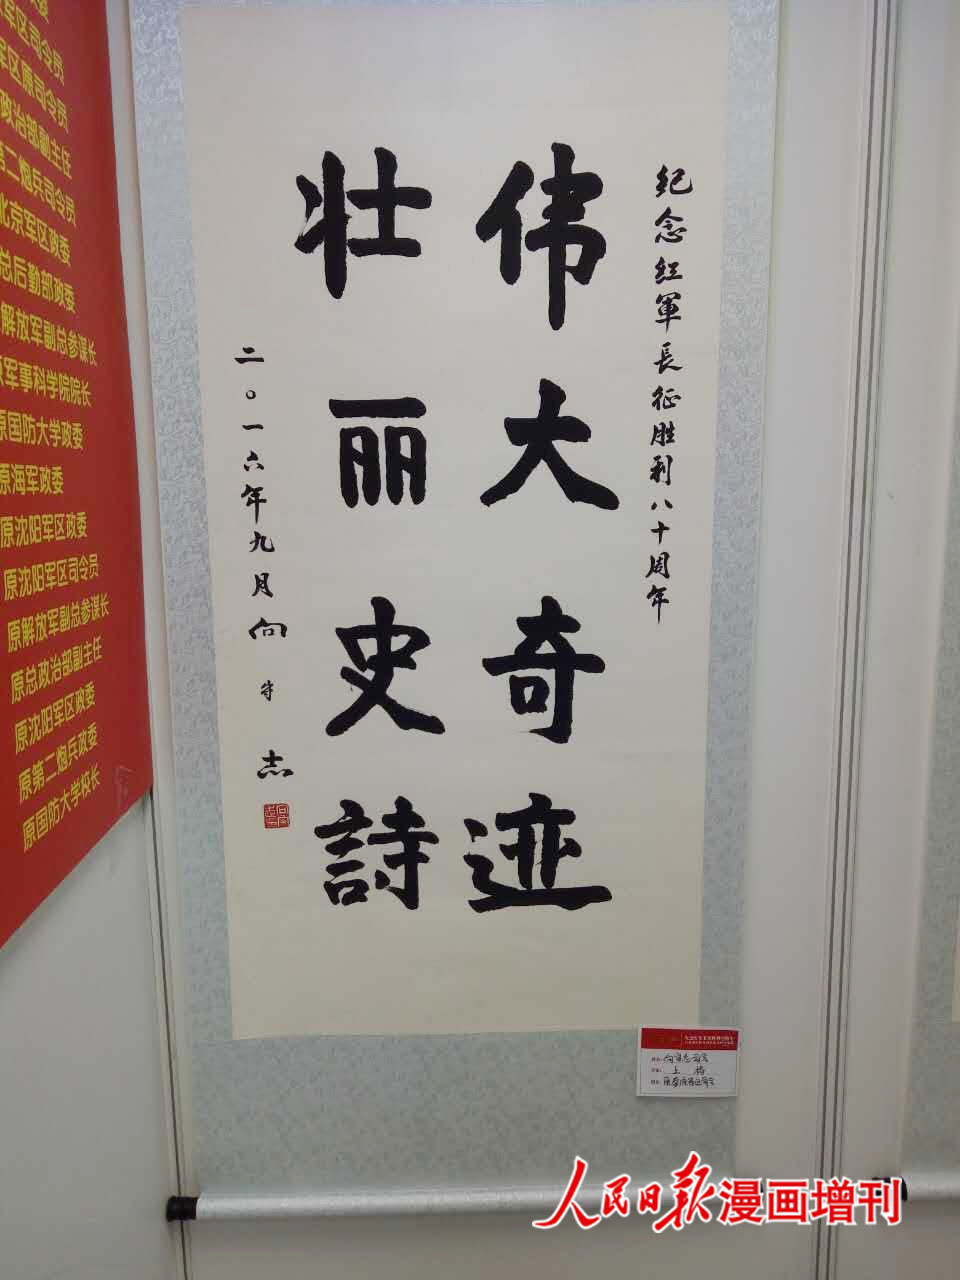 纪念红軍長征胜利八十周年
伟大奇迹
壮丽史詩
二〇一六年九月向守志
军区司令员
军区原司令员
政治部副主任
第二炮兵司令员
北京军区政委
总后勤部政委
解放军副总参谋长
原军事科学院院长
原国防大学政委
原海军政委
原沈阳军区政委
原沈阳军区司令员
原解放军副总参谋长
原总政治部副主任
原沈阳军区政委
原第二炮兵政委
原国防大学校长
向守志司令
上将
人民日报漫画增刊